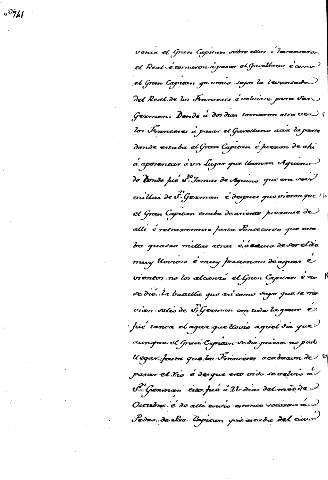 venia el Gran Capitan sobre ellos é levantaron
el Real é tornaron á pasar el Garellano é como
el Gran Capitan que supo la levantada
del Real de los Franceses é volvióse para San
German. Donde á dos dias tornaron otra vez
los Franceses á pasar el Garellano acia la parte
donde estaba el Gran Capitan é fueron de ahi
á aposentar á un Lugar que llaman Aquino
de Donde fué Sto. Tomas de Aquino que era seis
millas de Sn. German é despues que vieron que
el Gran Capitan estaba de asiento fueronse de
alli é retraxeronse hasta Pontecorvo que esta
ba quatro millas atras é á causa de ser el dia
muy lluvioso é muy grandes aguas é
vientos no los alcanzó el Gran Capitan é no
se dió la batalla que asi como supo que se mo
vian salió de Sn. German con toda la gente é
fué tanta el agua que llovió aquel dia que
aunque el Gran Capitan se dio priesa no pudo
llegar hasta que los Franceses acabaron de
pasar el Rio é desque esto vido se volvió á
Sn. German esto fué á 22 dias del mes de
Octubre é de alli envió á socorrer á
Pedro de Capitan que